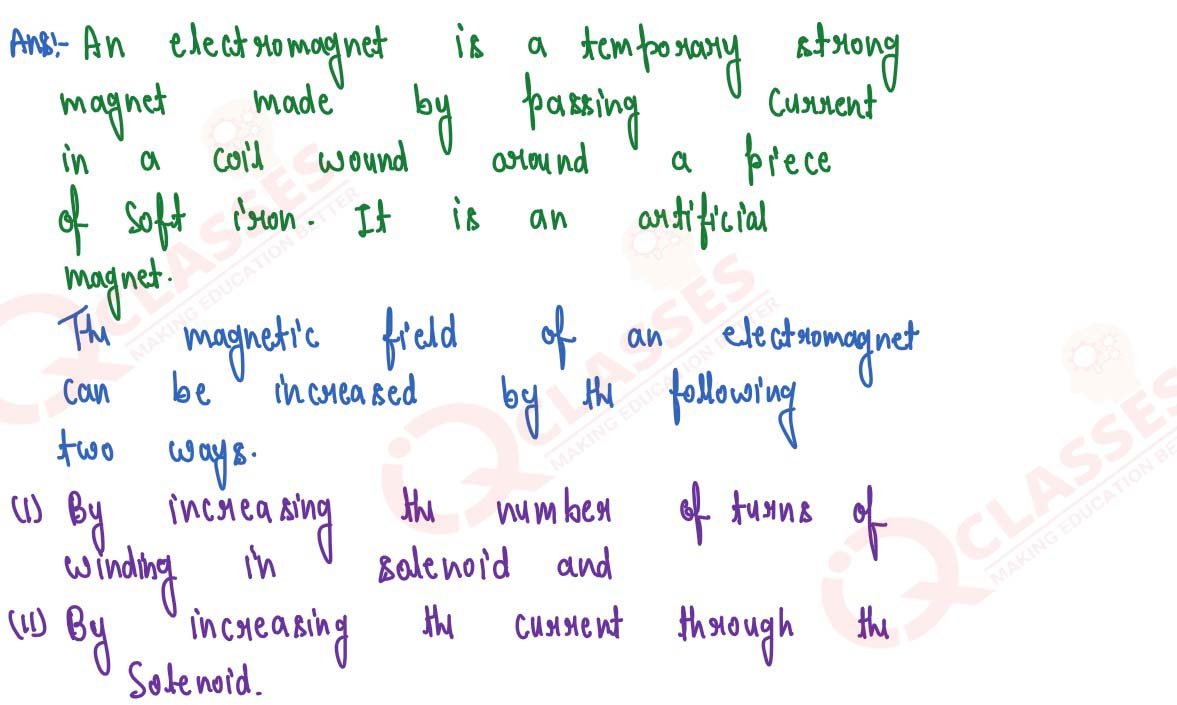 Ans:- An electromagnet is a temporary strong
magnet made by passing current
in a coil wound around a piece
of soft iron. It is an artificial
magnet.
The magnetic field of an electromagnet
can be increased by the following
two ways.
(I) By increasing the number of turns of
winding in solenoid and
(II) By increasing the current through the
Solenoid.
iQ CLASSES
MAKING EDUCATION BETTER
iQ CLASSES
MAKING EDUCATION BETTER
iQ CLASSES
MAKING EDUCATION BE